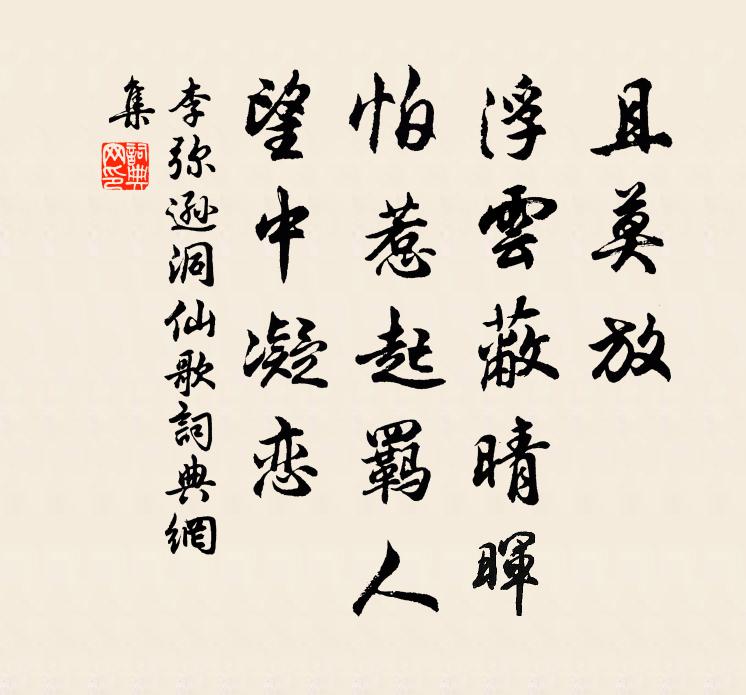 且莫放
浮雲蔽晴暉
怕惹起羈人
望中凝恋
李弥遜洞仙歌詞典網
集
詞典
网印